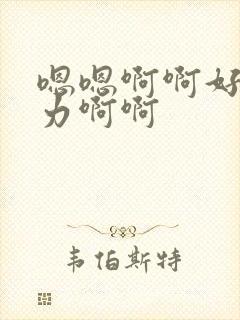 嗯嗯啊啊好
力啊啊
韦伯斯特